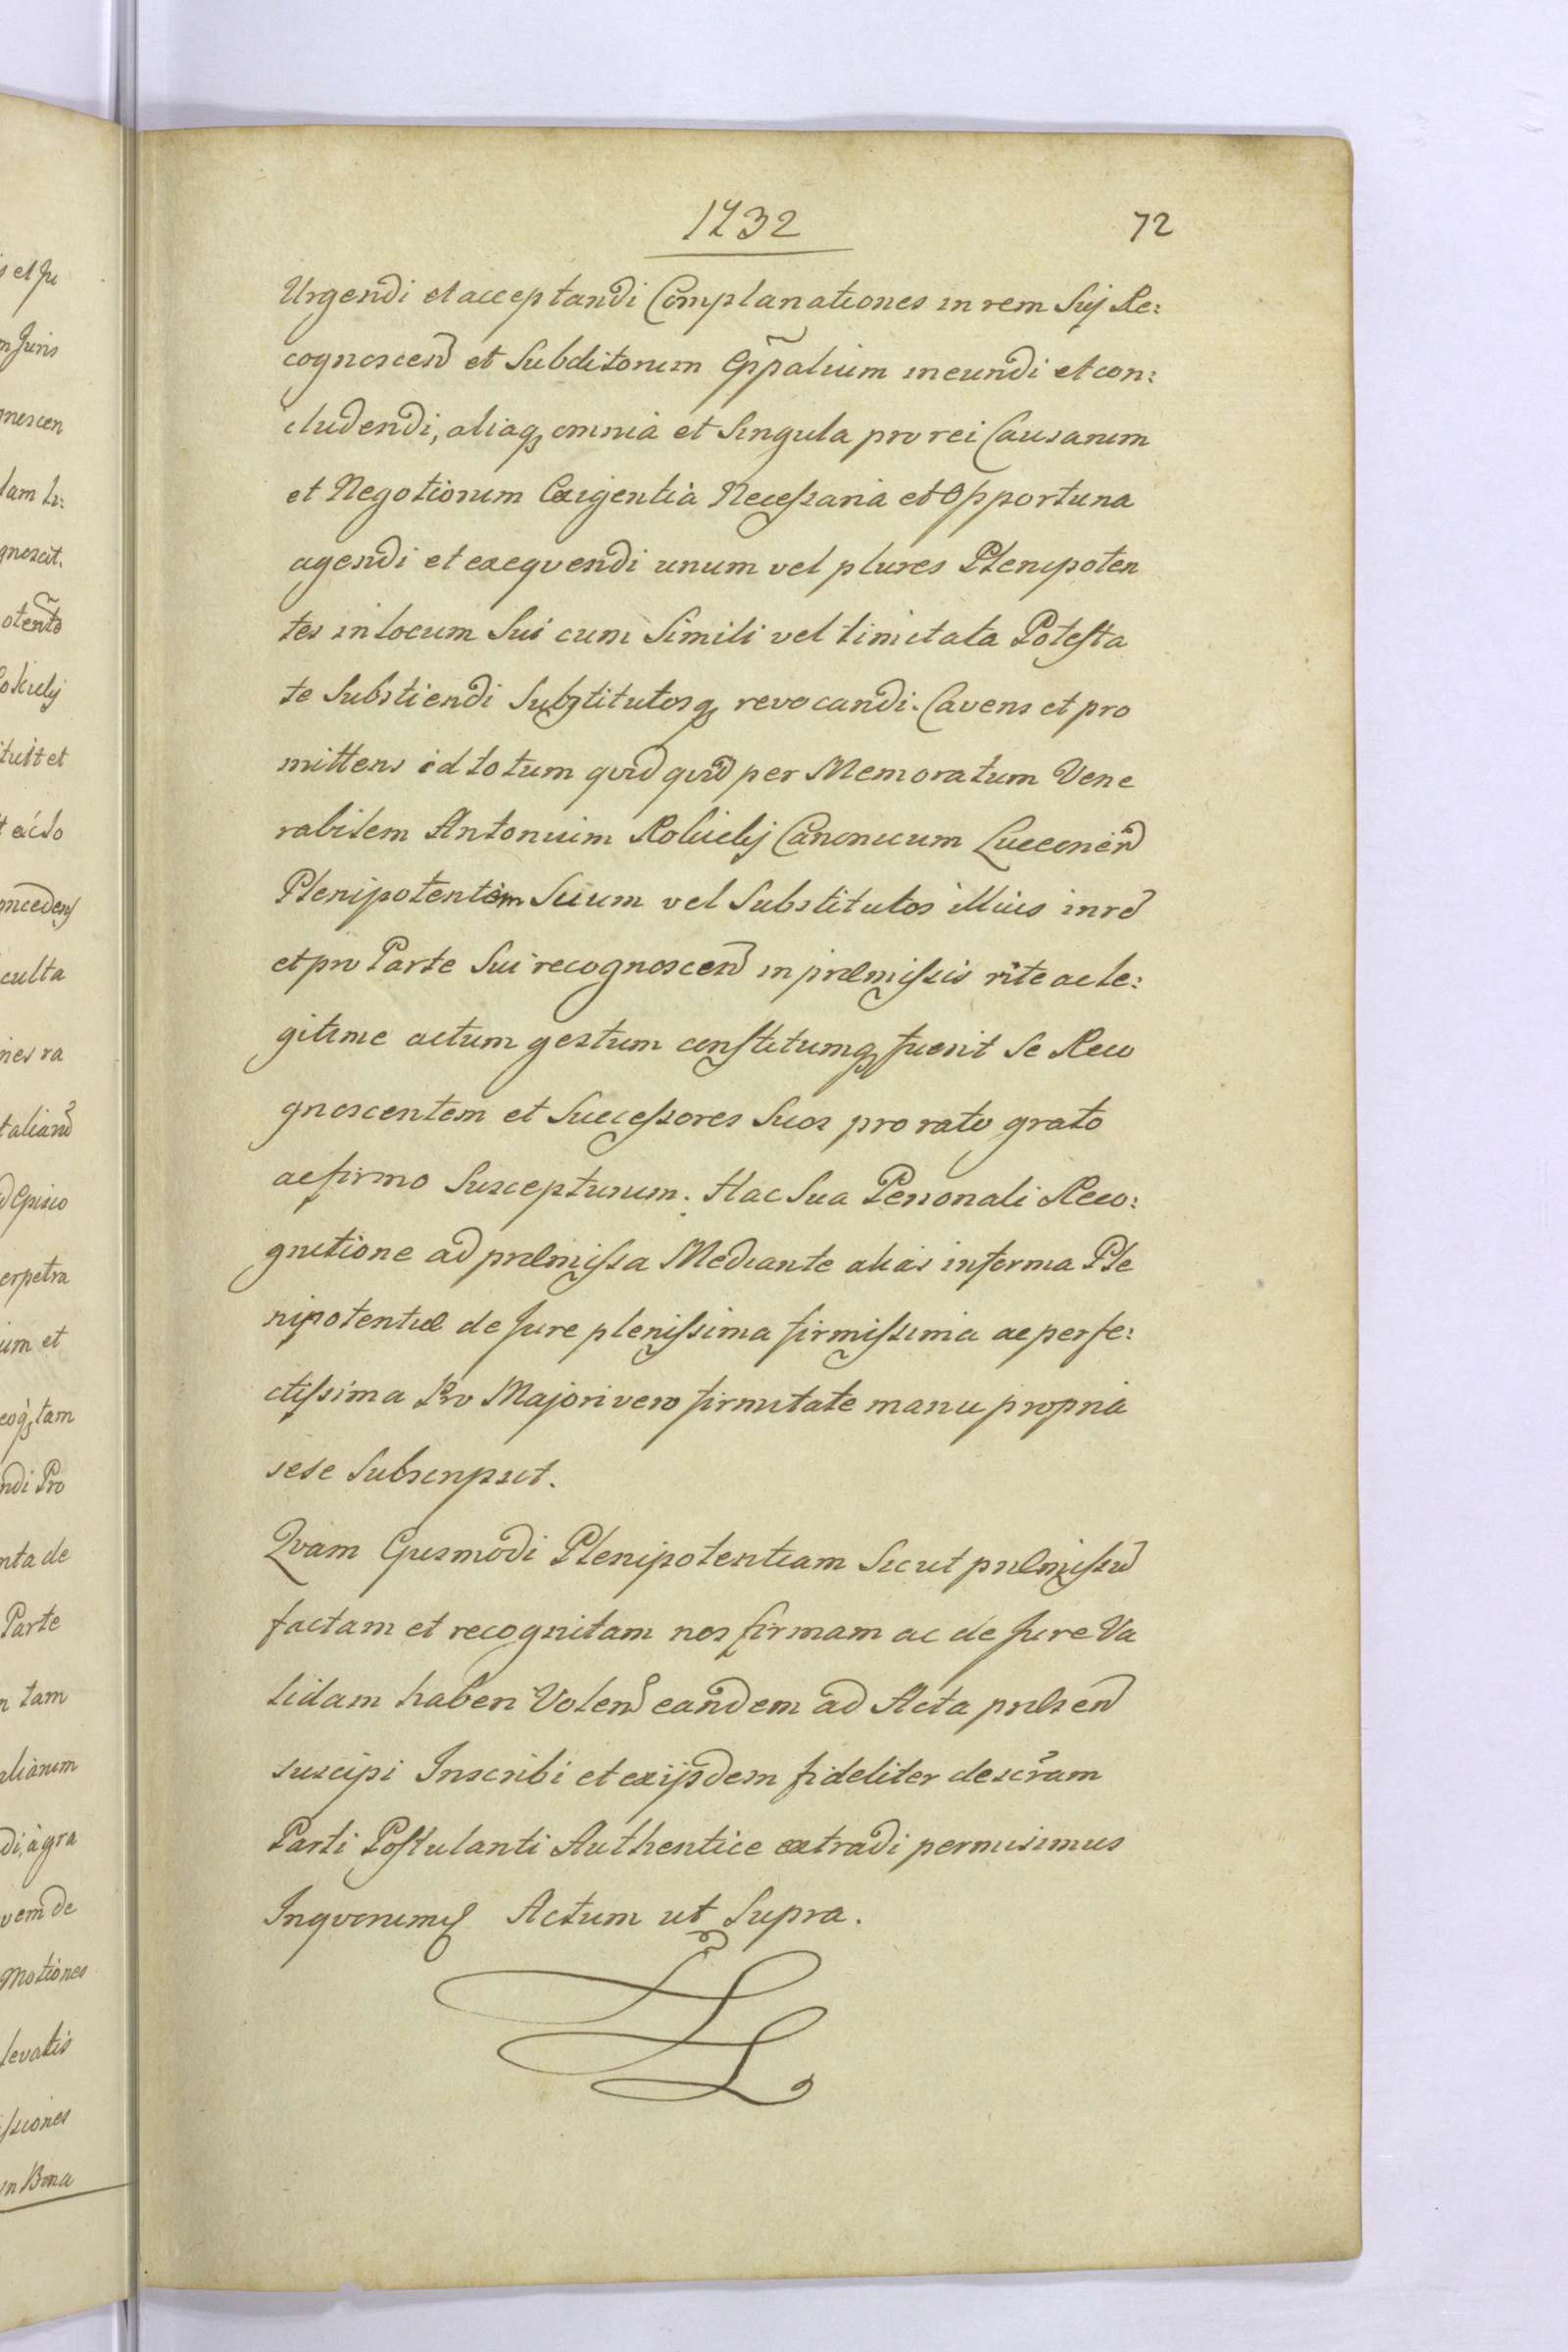 1732
72
Urgendi et acceptandi Complanationes in rem Sui Re:
cognoscen et Subditorum Eppalium ineundi et con:
cludendi, aliaq omnia et Singula pro rei Causarum
et Negotiorum Exigentia Necessaria et Opportuna
agendi et exequendi unum vel plures Plenipoten
tes in locum Sui cum Simili vel limitata Potesta
te Substiendi Substitutosq revocandi. Cavens et pro
mittens id totum quid quid per Memoratum Vene
rabilem Antonium Canonicum
Plenipotentem Suum vel Substitutos illius in re
et pro Parte Sui recognoscen in præmissis rite ac le:
gitime actum gestum constitumq fuerit Se Reco
gnoscentem et Successores Suos pro rato grato
ac firmo Suscepturum. Hac Sua Personali Reco:
gnitione ad præmissa Mediante alias in forma Ple
nipotentiæ de Jure plenissima firmissima ac perfe:
ctissima Pro Majori vero firmitate manu propria
sese Subscripsit.
Qvam Ejusmodi Plenipotentiam Sicut præmissu
factam et recognitam nos firmam ac de Jure Va
lidam haberi Volen eandem ad Acta præsen
suscipi Inscribi et exijsdem fideliter descram
Parti Postulanti Authentice extradi permisimus
Actum ut Supra.
et Ju
Juris
gnoscen
lam
gnoscit.
tuit et
culta
nes ra
Episco
erpetra
um et
tam
ndi Pro
nta de
Parte
n tam
alianum
di, à gra
vem de
motiones
levatis
ssiones
in Bona